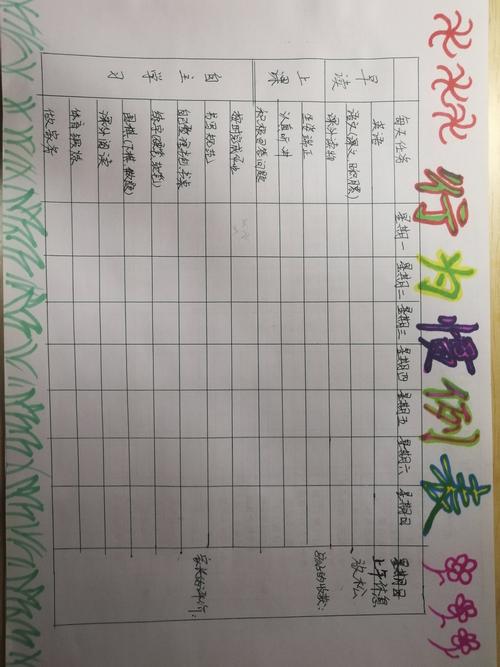 行为惯例表
每天任务 星期一 星期二 星期三 星期四 星期五 星期六 星期日 星期日
上午休息
放松
早读
英语
语文(课文
课外读物
上课
坐姿端正
认真听讲
积极回答问题
的收获:
自主学习
按时完成作业
书写规范
自己整理书包、书桌
练字(硬笔、软笔)
围棋(下棋、做题)
课外阅读
体育锻炼
做家务
家长的评价: